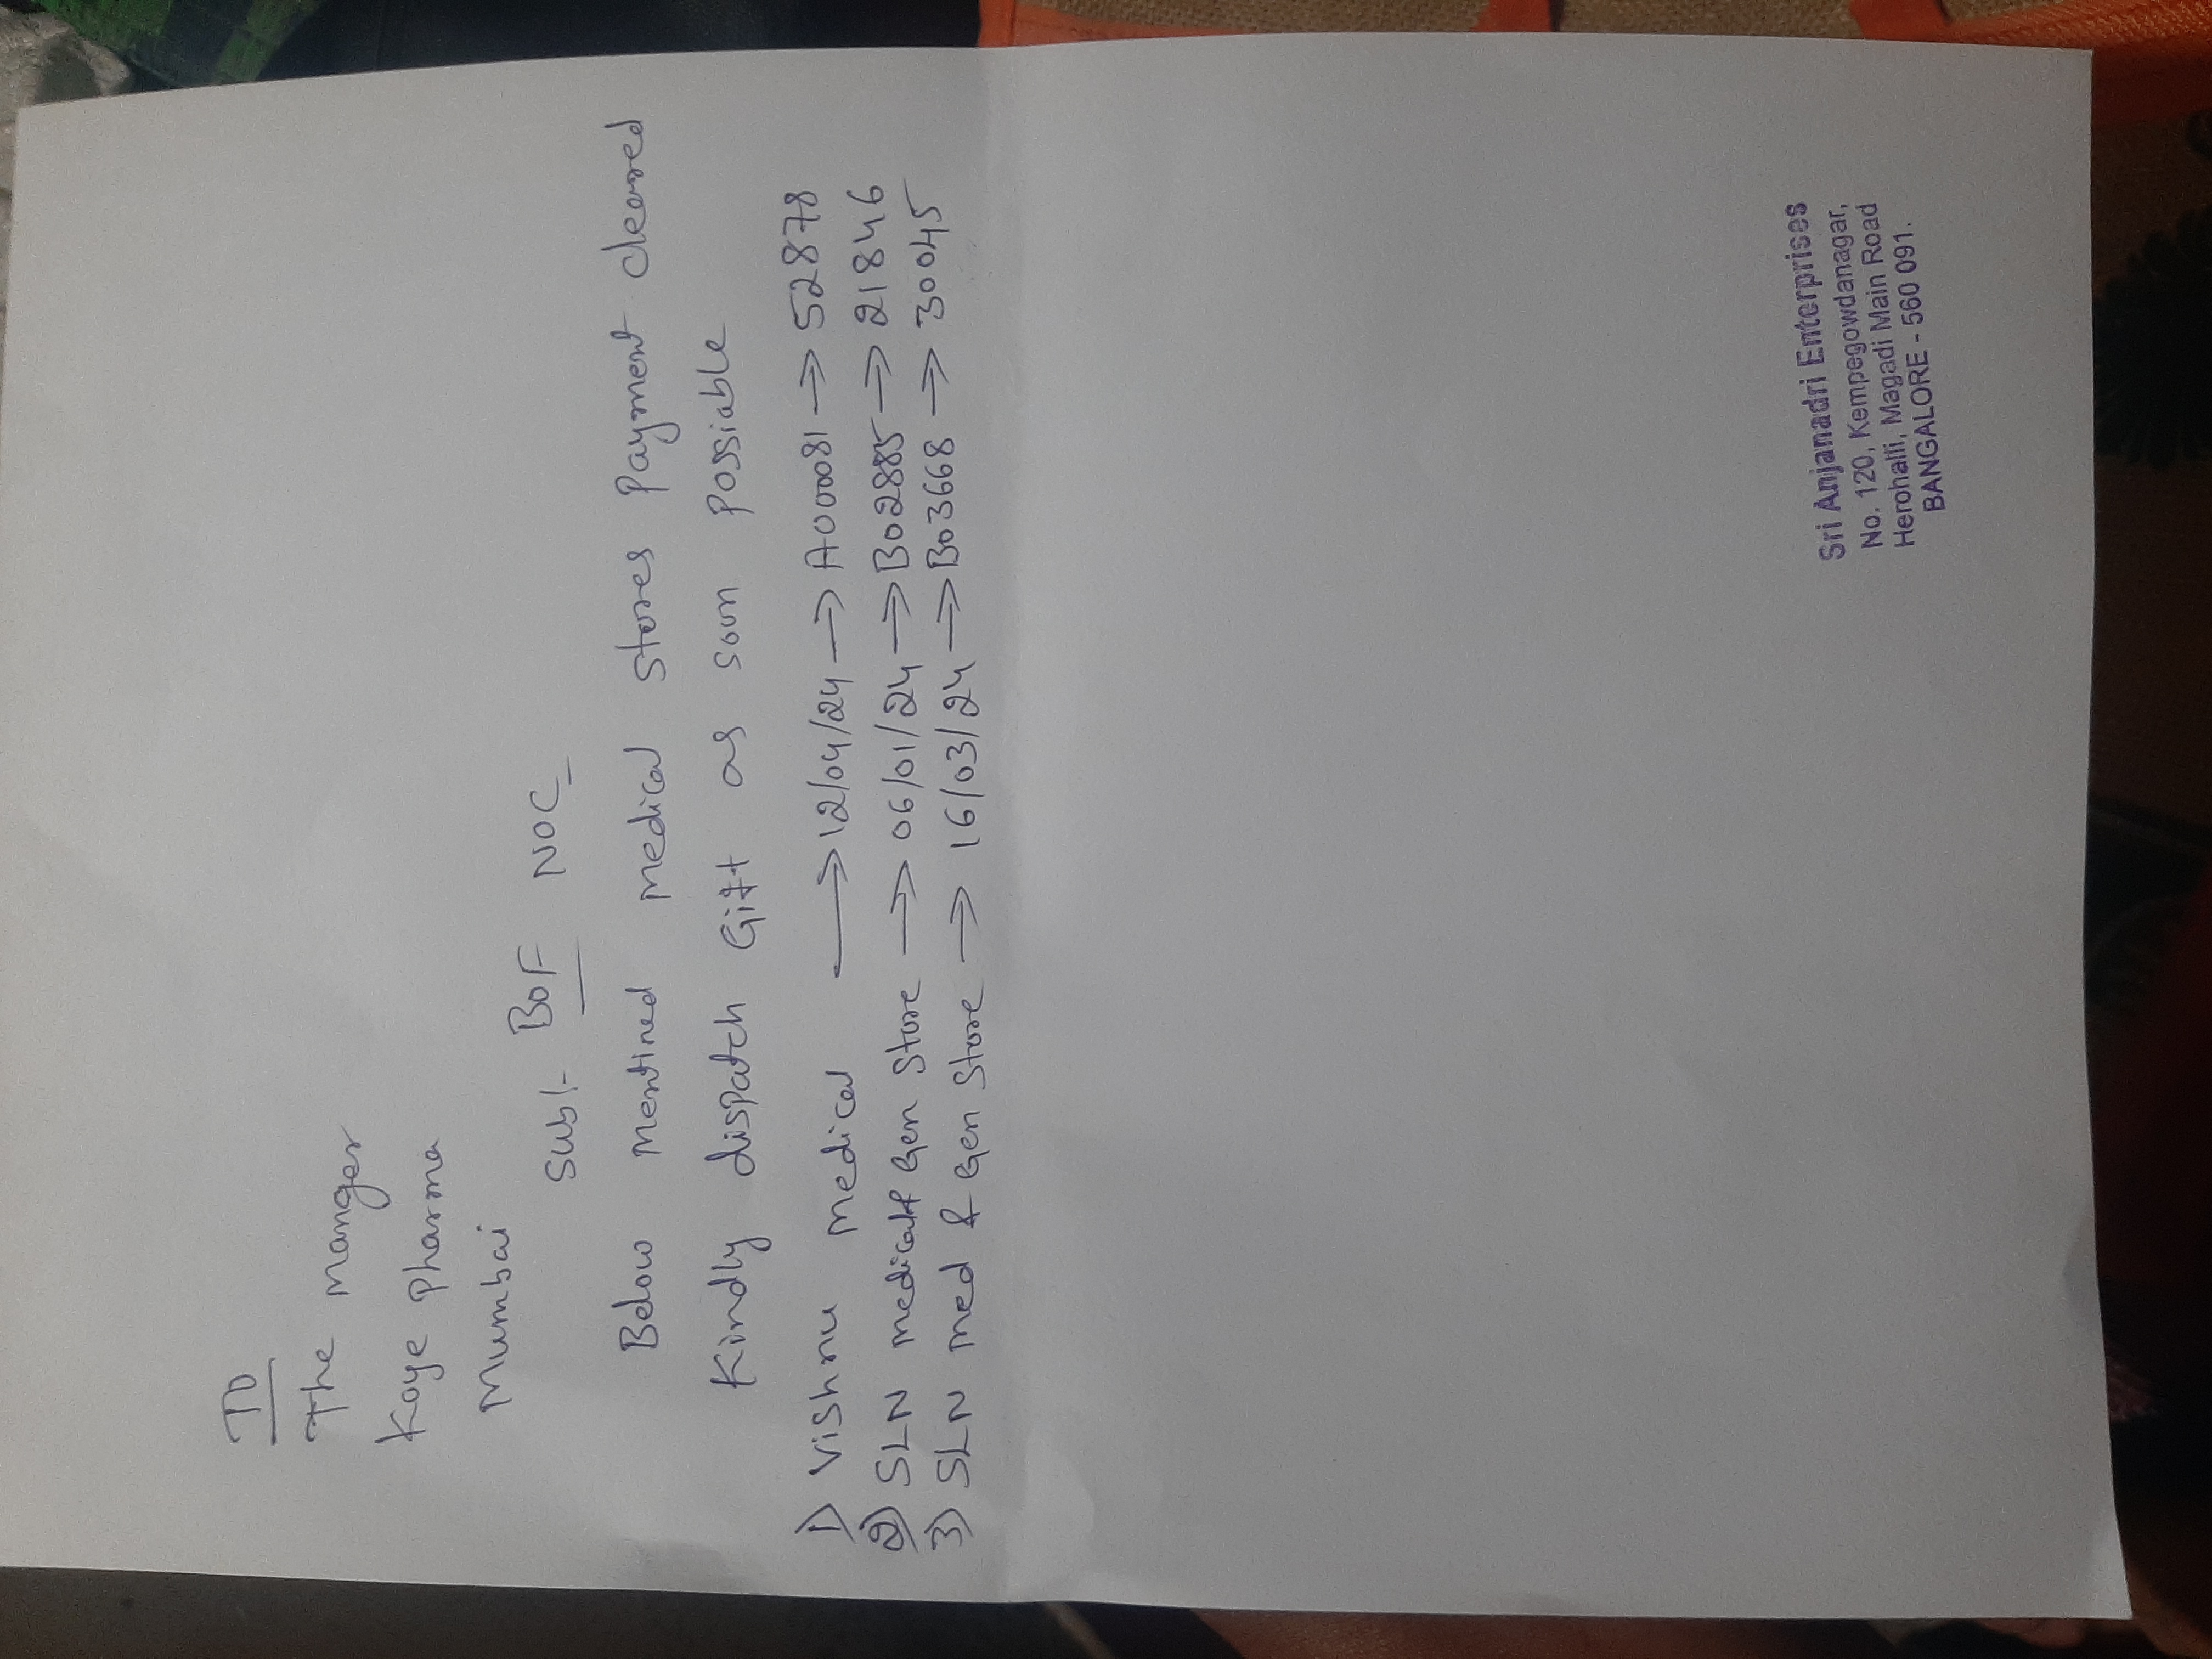 TO
The manger
Koye Pharma
Mumbai
Sub:- BOF NOC
Below mentined medical stores Payment cleared
Kindly dispatch Gift as soon possiable
1) Vishnu medical → 12/04/24 → A00081 → 52878
2) SLN medical & Gen Store → 06/01/24 → B02885 → 21846
3) SLN med & Gen Store → 16/03/24 → B03668 → 30045
Sri Anjanadri Enterprises
No. 120, Kempegowdanagar,
Herohalli, Magadi Main Road
BANGALORE - 560 091.